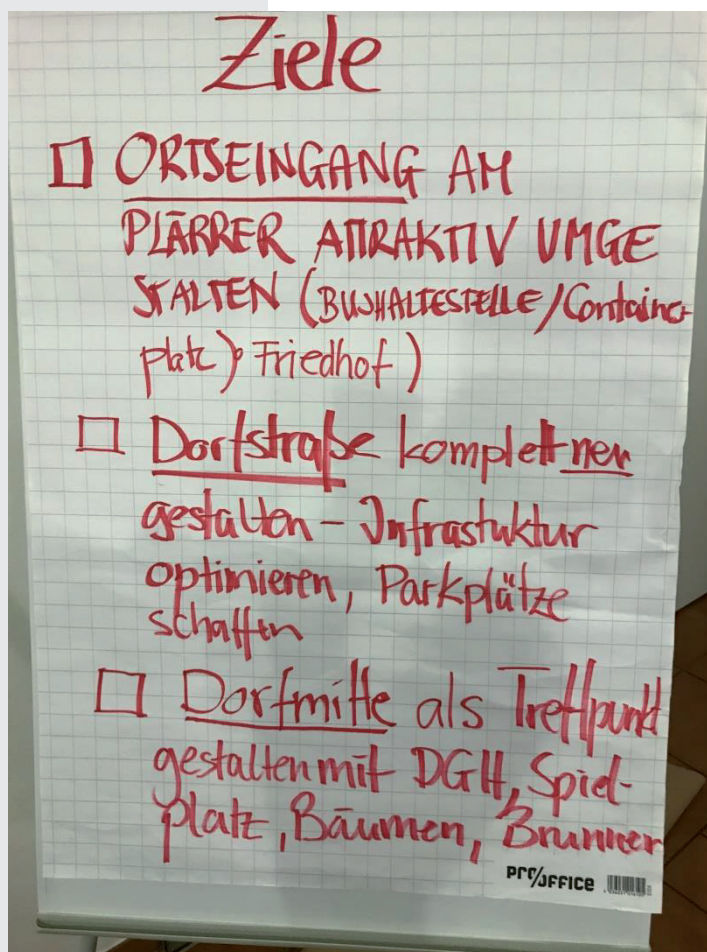 Ziele
ORTSEINGANG AM
PLÄRRER ATTRAKTIV UMGE
STALTEN (BUSHALTESTELLE/Container
platz) Friedhof)
Dorfstraße komplett neu
gestalten - Infrastuktur
optimieren, Parkplätze
schaffen
Dorfmitte als Treffpunkt
gestalten mit DGH, Spiel-
platz, Bäumen, Brunnen
PRO/OFFICE